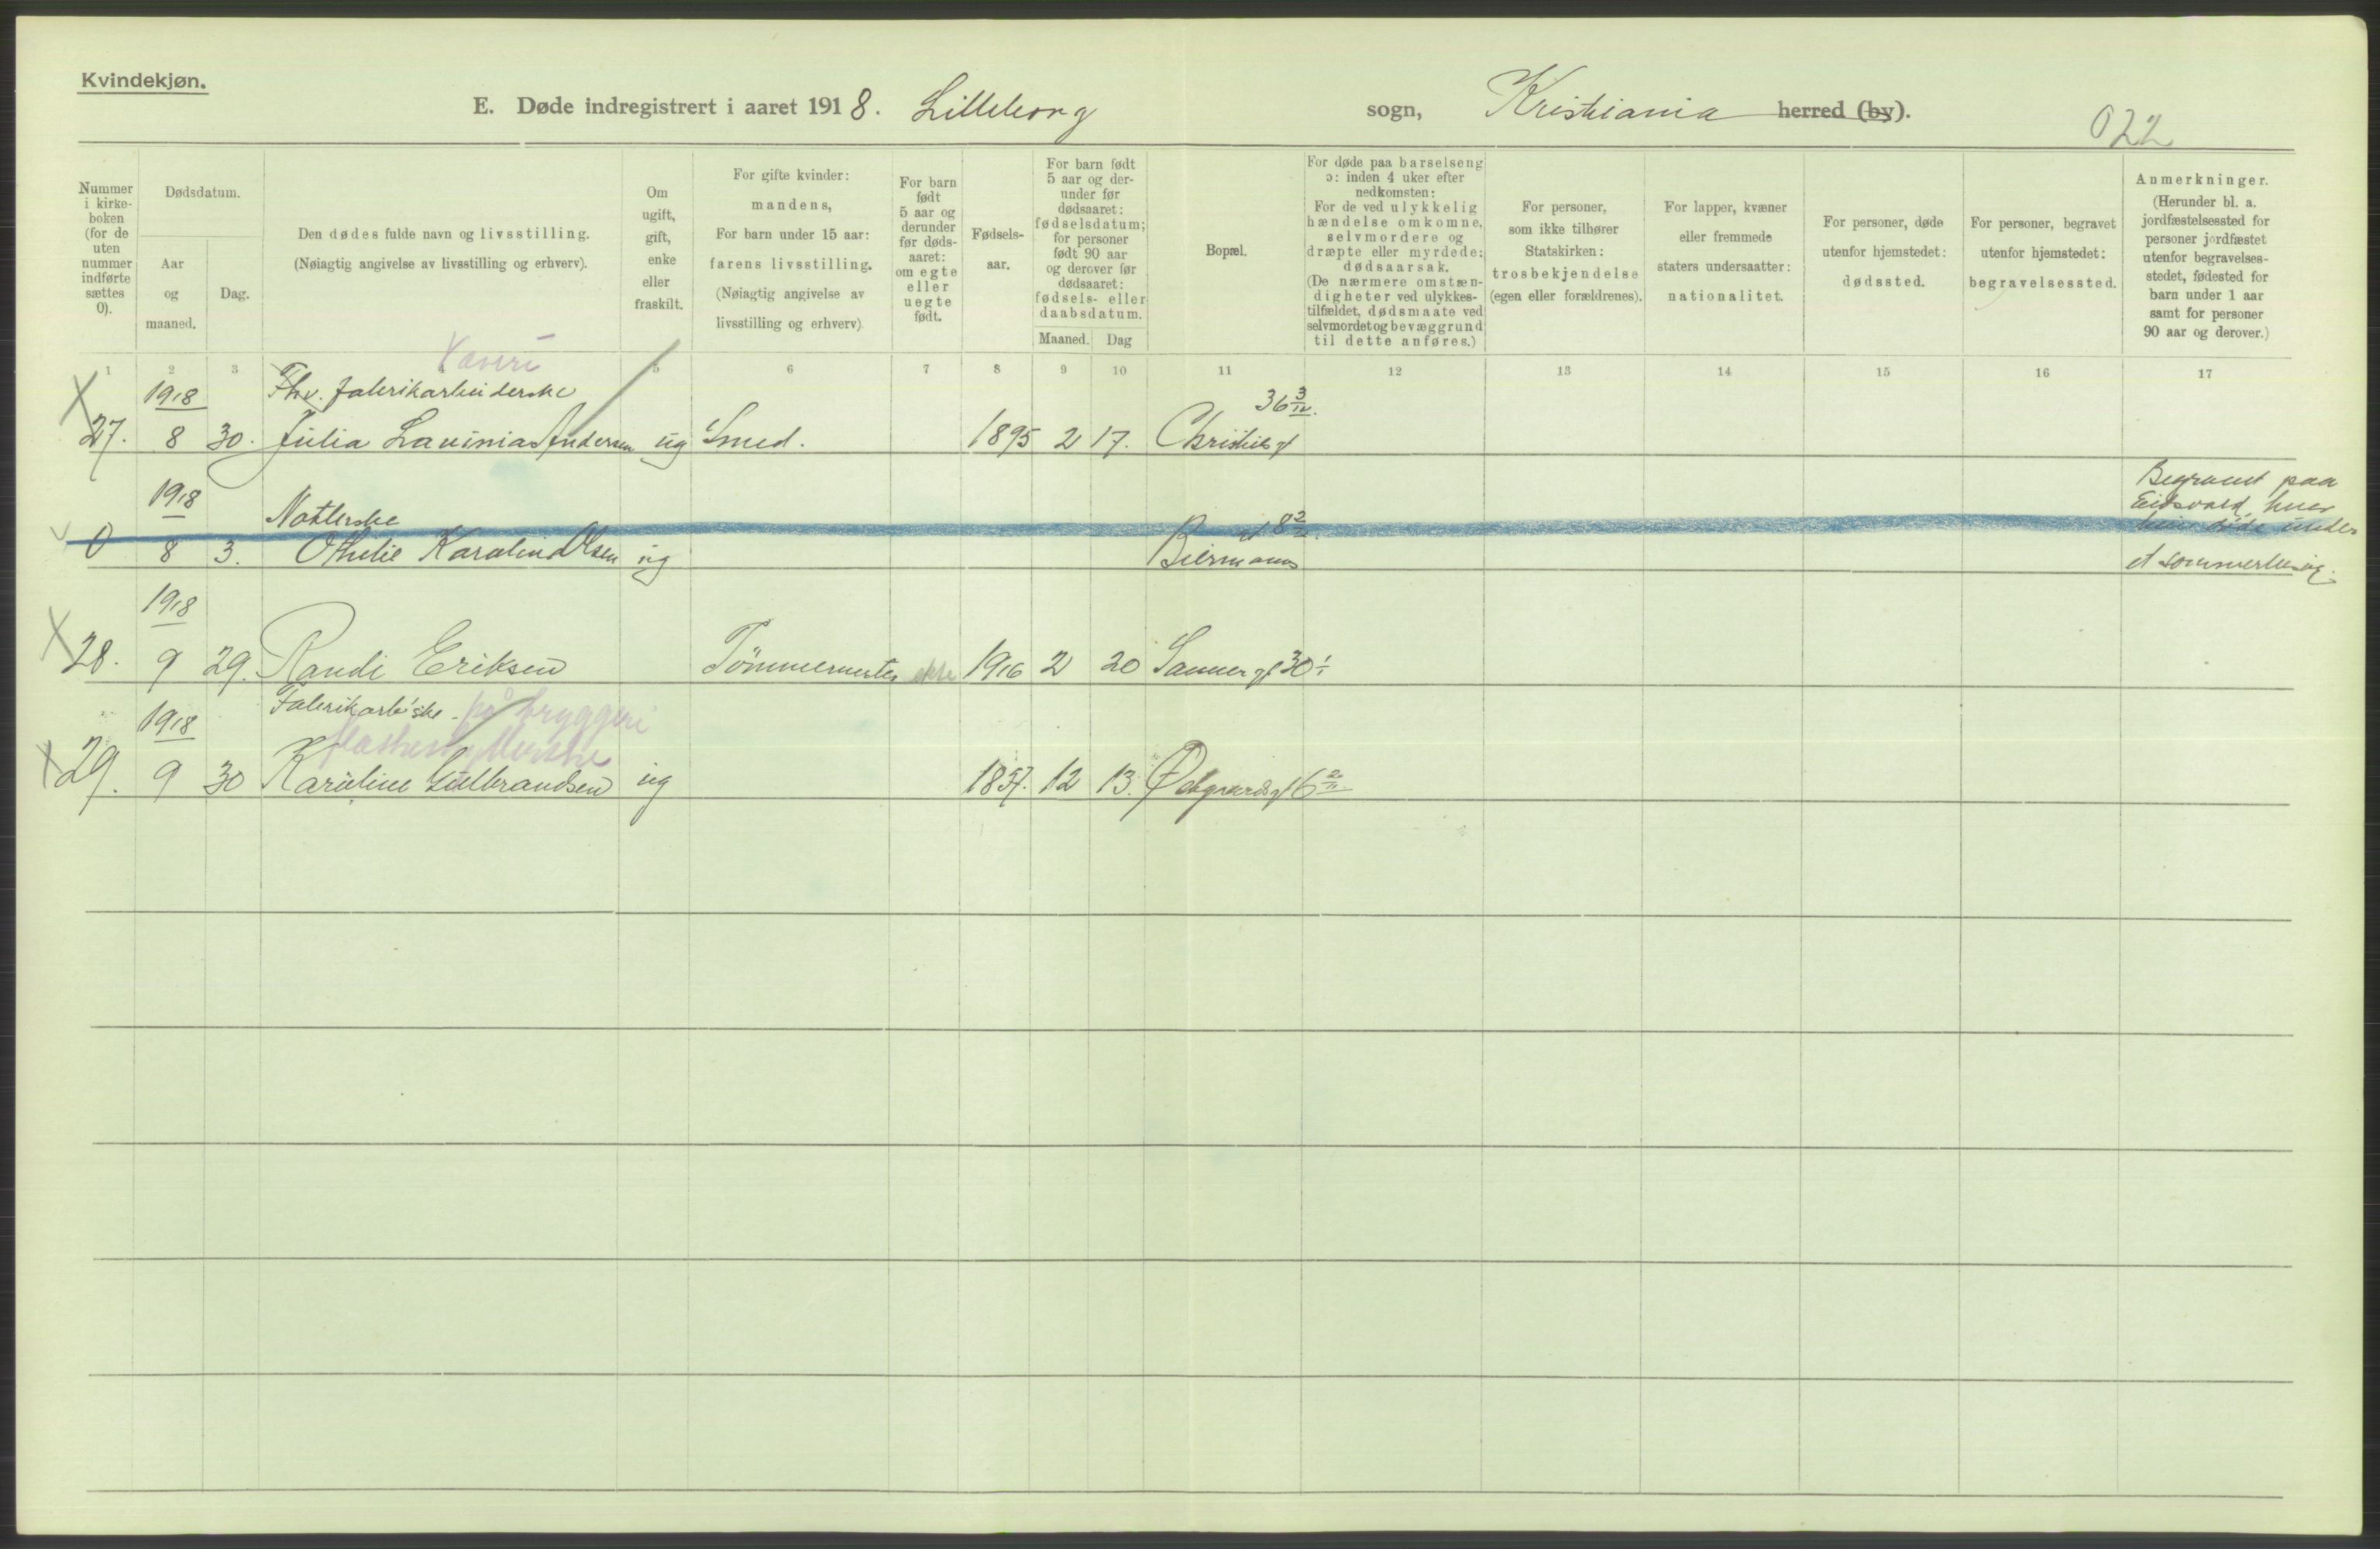 Kvindekjøn.
E. Døde indregistrert i aaret 1918. Lilleborg sogn, Kristiania herred (by).
022
Nummer i kirkeboken (for de uten nummer indførte sættes 0).
Dødsdatum.
Aar og maaned.
Dag.
Den dødes fulde navn og livsstilling.
(Nøiagtig angivelse av livsstilling og erhverv).
Om ugift, gift, enke eller fraskilt.
For gifte kvinder: mandens, For barn under 15 aar: farens livsstilling. (Nøiagtig angivelse av livsstilling og erhverv)
For barn født 5 aar og derunder før dødsaaret: om egte eller uegte født.
Fødselsaar.
For barn født 5 aar og derunder før dødsaaret: fødselsdatum; for personer født 90 aar og derover før dødsaaret: fødsels- eller daabsdatum.
Maaned. Dag
Bopæl.
For døde paa barselseng ɔ: inden 4 uker efter nedkomsten: For de ved ulykkelig hændelse omkomne, selvmordere og dræpte eller myrdede: dødsaarsak. (De nærmere omstændigheter ved ulykkestilfældet, dødsmaate ved selvmordet og bevæggrund til dette anføres.)
For personer, som ikke tilhører Statskirken: trosbekjendelse (egen eller forældrenes).
For lapper, kvæner eller fremmede staters undersaatter: nationalitet.
For personer, døde utenfor hjemstedet: dødssted.
For personer, begravet utenfor hjemstedet: begravelsessted.
Anmerkninger. (Herunder bl. a. jordfæstelsessted for personer jordfæstet utenfor begravelsesstedet, fødested for barn under 1 aar samt for personer 90 aar og derover.)
1 2 3 5 6 7 8 9 10 11 12 13 14 15 16 17
1918 Fhv. fabrikarbeiderske 36 3/IV.
27. 8 30. Julia Lavinia Andersen ug Smed. 1895 2 17. Christiesgt
1918 Begravet paa
Eidsvold, hvor
hun døde under
0 8 3. Othilie Karoline Olsen ug Biermanns
et sommerbesøg.
1918
28. 9 29. Randi Eriksen Tömmermester ekte 1916 2 20 Sannergt 30
1918 Fabrikarb'ske. på bryggeri
29. 9 30 Karoline Gulbrandsen ug 1857. 12 13. Ødegaardsgt 6 2/II